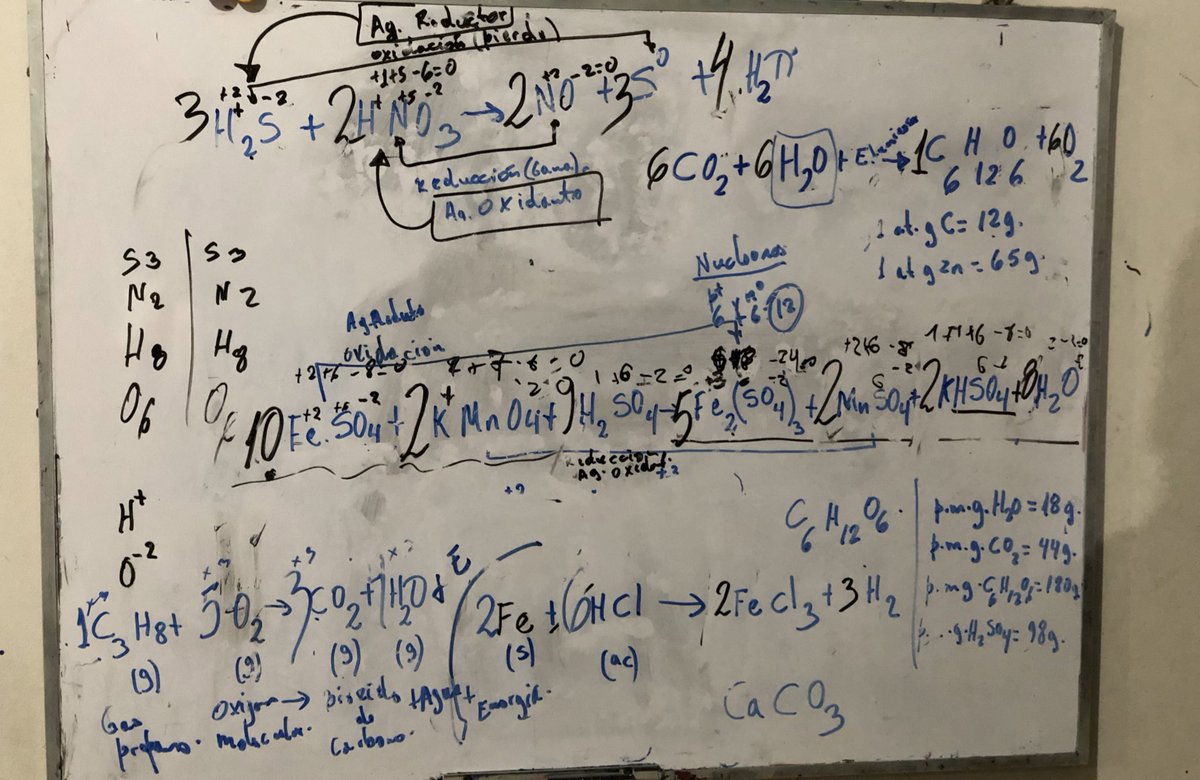 Ag. Reductor
oxidación (pierde)
+1+5-6=0
+2 -2 + +5 -2 +2 -2=0 0
3H₂S + 2HNO₃ → 2NO + 3S + 4H₂
Reducción (Gana).
Ag. Oxidante
6CO₂ + 6H₂O + E → 1C₆H₁₂O₆ + 6O₂
1 at. g C = 12g.
1 at g Zn = 65g.
S3 | S3
N2 | N2
H8 | H8
O6 | O
Nucleones
p⁺ n⁰
6 + 6 = 12
oxidación
+2 +6 -8=0
+2 +6 -2
10FeSO₄ + 2KMnO₄ + 9H₂SO₄ → 5Fe₂(SO₄)₃ + 2MnSO₄ + 2KHSO₄ + 8H₂O
Reducción
Ag. Oxidat. +2
H⁺
O⁻²
C₆H₁₂O₆.
p.m.g. H₂O = 18g.
p.m.g. CO₂ = 44g.
p.m.g. C₆H₁₂O₆ = 180g
g. H₂SO₄ = 98g.
1C₃H₈ + 5O₂ → 3CO₂ + H₂O + E
(g) (g) (g) (g)
Gas propano. Oxígeno molecular. → Dioxido de Carbono. + Agua + Energia.
2Fe + 6HCl → 2FeCl₃ + 3H₂
(s) (ac)
CaCO₃